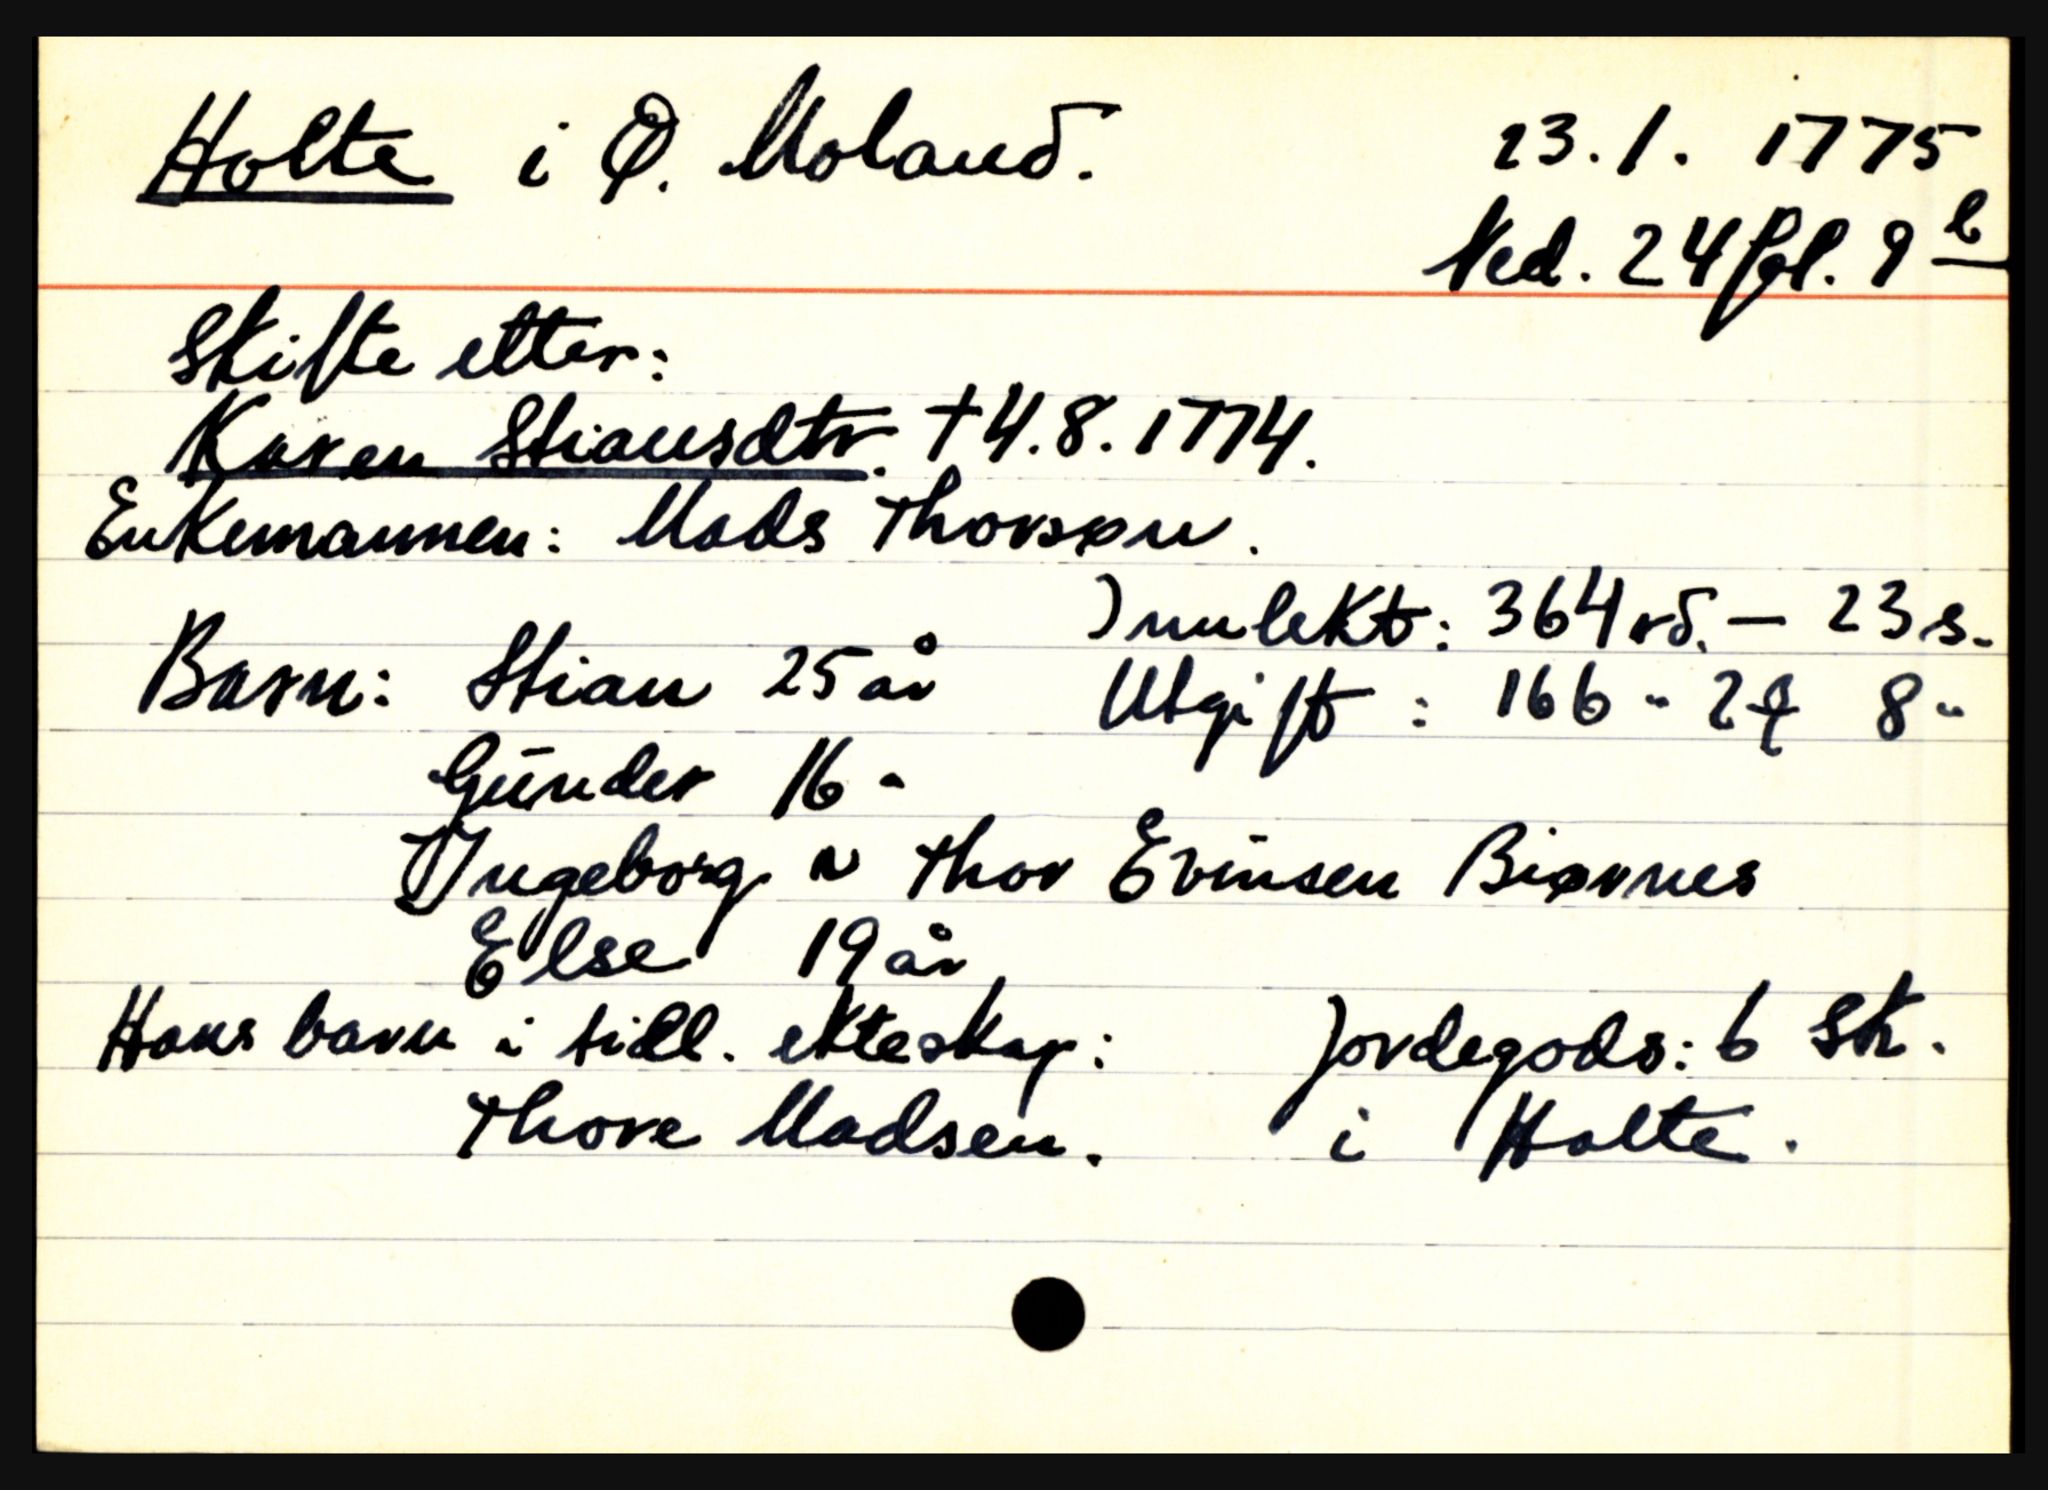 Holte i Ø. Moland. 23.1. 1775
Ned. 24 fol. 9 b
Skifte etter:
Karen Stiansdtr. † 4.8.1774.
Enkemannen: Mads Thorsøn.
Innlekt: 364 rd. – 23 s.
Barn: Stian 25 år Utgift: 166 " 2 8 "
Günder 16 "
Ingeborg ~ Thor Evinsen Biørnes
Else 19 år
Hans barn i tidl. ekteskap: Jordegods: 6 Sk.
Thore Madsen. i Holte.